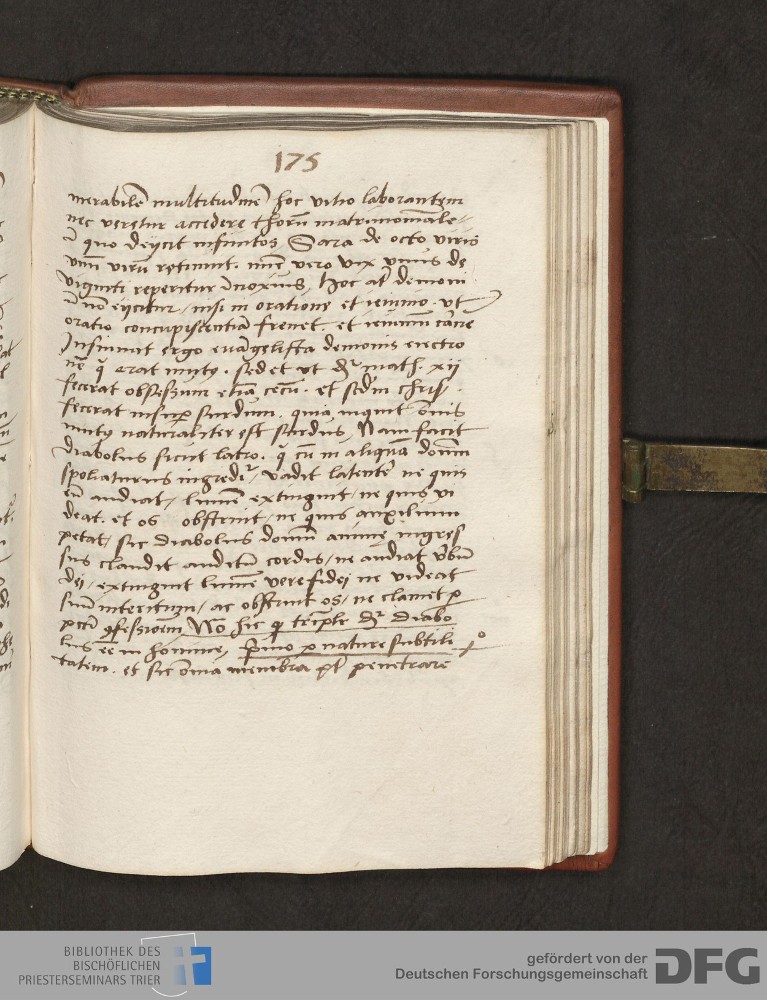 175
merabilē multitudinē hoc vitio laborantem
nec veretur accedere thorū matrimoniale
ī quo deijcit infinitos Sara de octo viris
vnū virū retinuit. nūc vero vix vnus de
viginti reperitur īnoxius, hoc at demonī
nō eijcitur, nisi in oratione et ieiunio. vt
oratio concupiscentiā frenet. et ieiuniū carnē
Insinuit ergo evāgelista demonis eiectio
nē q̄ erat mutꝰ. sed et vt dr̄ math. xii
fecerat obsessum etiā cecū. et scdm chris.
fecerat insuꝑ surdum. quia inquit ōnis
mutꝰ naturaliter est surdus, Nam facit
diabolus sicut latro. q̄ cū in aliquā domū
spoliaturus ingredit᷑, vadit latenter ne quis
eū audiat, lumē extinguit, ne quis vi
deat. et os obstruit, ne quis auxilium
petat, sic diabolus domū anime ingres
sus claudit auditū cordis, ne audiat v̄bū
dei, extinguit lumē vere fidei ne videat
suū interitum, ac obstruit os, ne clamet ꝑ
pctī ꝯfessioēm No hic q̄ tripl̄r dr̄ diabo
lus eē in homine, primo ꝑ nature subtili
tatem. et sic om̄ia membra pt̄ penetrare
BIBLIOTHEK DES
BISCHÖFLICHEN
PRIESTERSEMINARS TRIER
gefördert von der
Deutschen Forschungsgemeinschaft
DFG